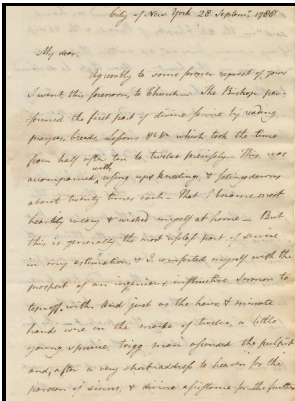 City of New York 28 Septemr. 1788
My dear
Agreeably to some former request of yours
I went, this forenoon, to Church — The Bishop per-
formed the first part of divine service by reading
prayers, creeds, Lessons &c &c which took the time
from half after ten to twelve precisely. This was
accompanied, with rising up & kneeling, & sitting down
about twenty times each — that I became most
heartily weary & wished myself at home — But
this is generally the most useless part of service
in my estimation, & I comforted myself with the
prospect of an ingenious, instructive Sermon to
top off with. And just as the hour & minute
hands were on the mark of twelve, a little
young, spruce, trigg man ascended the pulpit
and, after a very short address to heaven for the
pardon of sinners, & divine assistance for the further